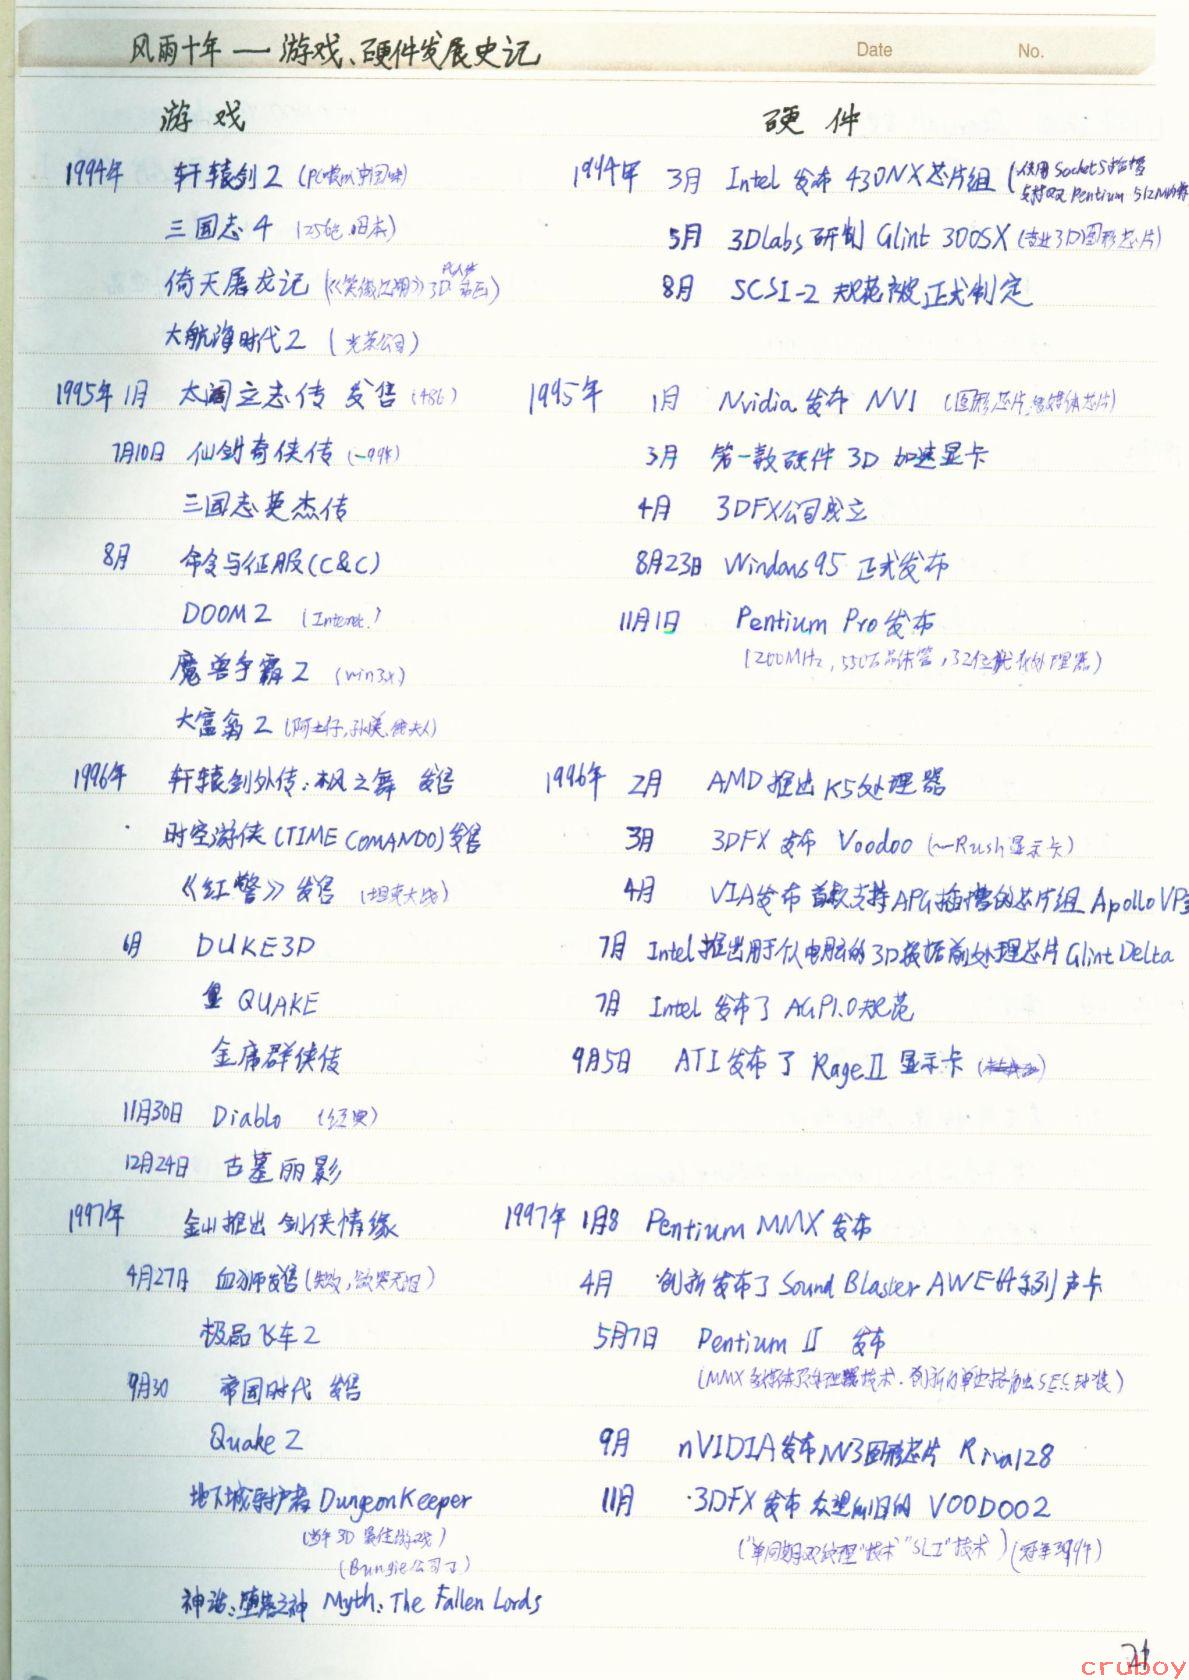 风雨十年 — 游戏、硬件发展史记 Date No.
游戏
1994年 轩辕剑2
三国志4
倚天屠龙记 (《笑傲江湖》3D
大航海时代2 (光荣公司)
1995年1月 太阁立志传 发售 (486)
7月10日 仙剑奇侠传
三国志英杰传
8月 命令与征服(C&C)
DOOM2 (Internet.)
魔兽争霸2 (win3x)
大富翁2 (阿土仔,孙小美,钱夫人)
1996年 轩辕剑外传:枫之舞 发售
时空游侠(TIME COMANDO)发售
《红警》发售 (坦克大战)
6月 DUKE3D
QUAKE
金庸群侠传
11月30日 Diablo (经典)
12月24日 古墓丽影
1997年 金山推出 剑侠情缘
4月27日 血狮发售(失败,欲哭无泪)
极品飞车2
9月30 帝国时代 发售
Quake2
地下城守护者 DungeonKeeper
(当年3D最佳游戏)
(Bungie公司了)
神话:堕落之神 Myth: The Fallen Lords
硬件
1994年 3月 Intel 发布 430NX芯片组 (使用Socket5插槽
支持双Pentium 512M内存
5月 3Dlabs 研制 Glint 300SX (专业3D图形芯片)
8月 SCSI-2 规范被正式制定
1995年 1月 Nvidia发布 NV1 (图形芯片,多媒体芯片)
3月 第一款硬件3D加速显卡
4月 3DFX公司成立
8月23日 Windows95 正式发布
11月1日 Pentium Pro发布
(200MHz,550万晶体管,32位
1996年 2月 AMD推出K5处理器
3月 3DFX 发布 Voodoo (~Rush显示卡)
4月 VIA发布首款支持APG插槽的芯片组 ApolloVP3
7月 Intel推出用于个人电脑的3D数据前处理芯片Glint Delta
7月 Intel 发布了 AGP1.0规范
9月5日 ATI发布了 RageII 显示卡
1997年 1月8 Pentium MMX发布
4月 创新发布了Sound Blaster AWE64系列声卡
5月7日 Pentium II 发布
9月 nVIDIA发布NV3图形芯片 Riva128
11月 3DFX发布众望所归的 VOODOO2
("单周期双纹理"技术"SLI"技术)
21
cruboy